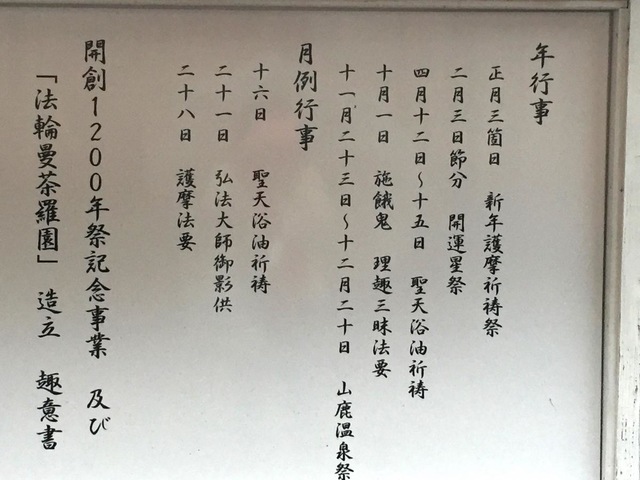 年行事
正月三箇日 新年護摩祈祷祭
二月三日節分 開運星祭
四月十二日～十五日 聖天浴油祈祷
十月一日 施餓鬼 理趣三昧法要
十一月二十三日～十二月二十日 山鹿温泉祭
月例行事
十六日 聖天浴油祈祷
二十一日 弘法大師御影供
二十八日 護摩法要
開創1200年祭記念事業 及び
「法輪曼荼羅園」 造立 趣意書